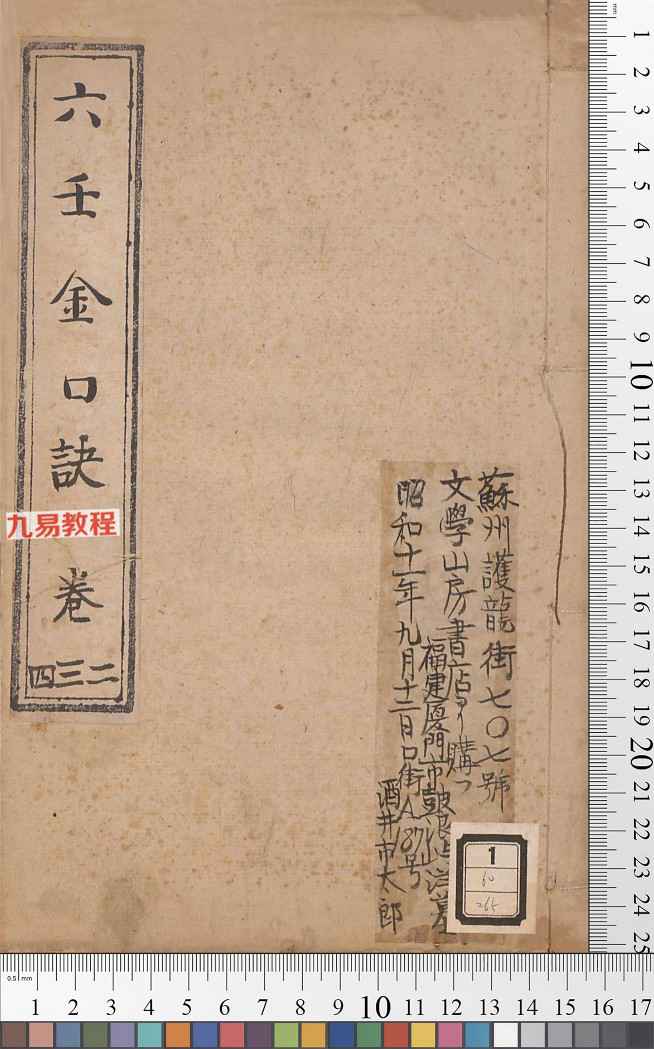 六壬金口訣 卷二三四
九易教程
蘇州護龍街七〇七號
文學山房書店ヨリ購フ
福建廈門市鼓浪嶼
昭和十一年九月十二日
口街A87号
酒井市太郎
1
60
265
0.5 mm
1 2 3 4 5 6 7 8 9 10 11 12 13 14 15 16 17
mm
1 2 3 4 5 6 7 8 9 10 11 12 13 14 15 16 17 18 19 20 21 22 23 24 25